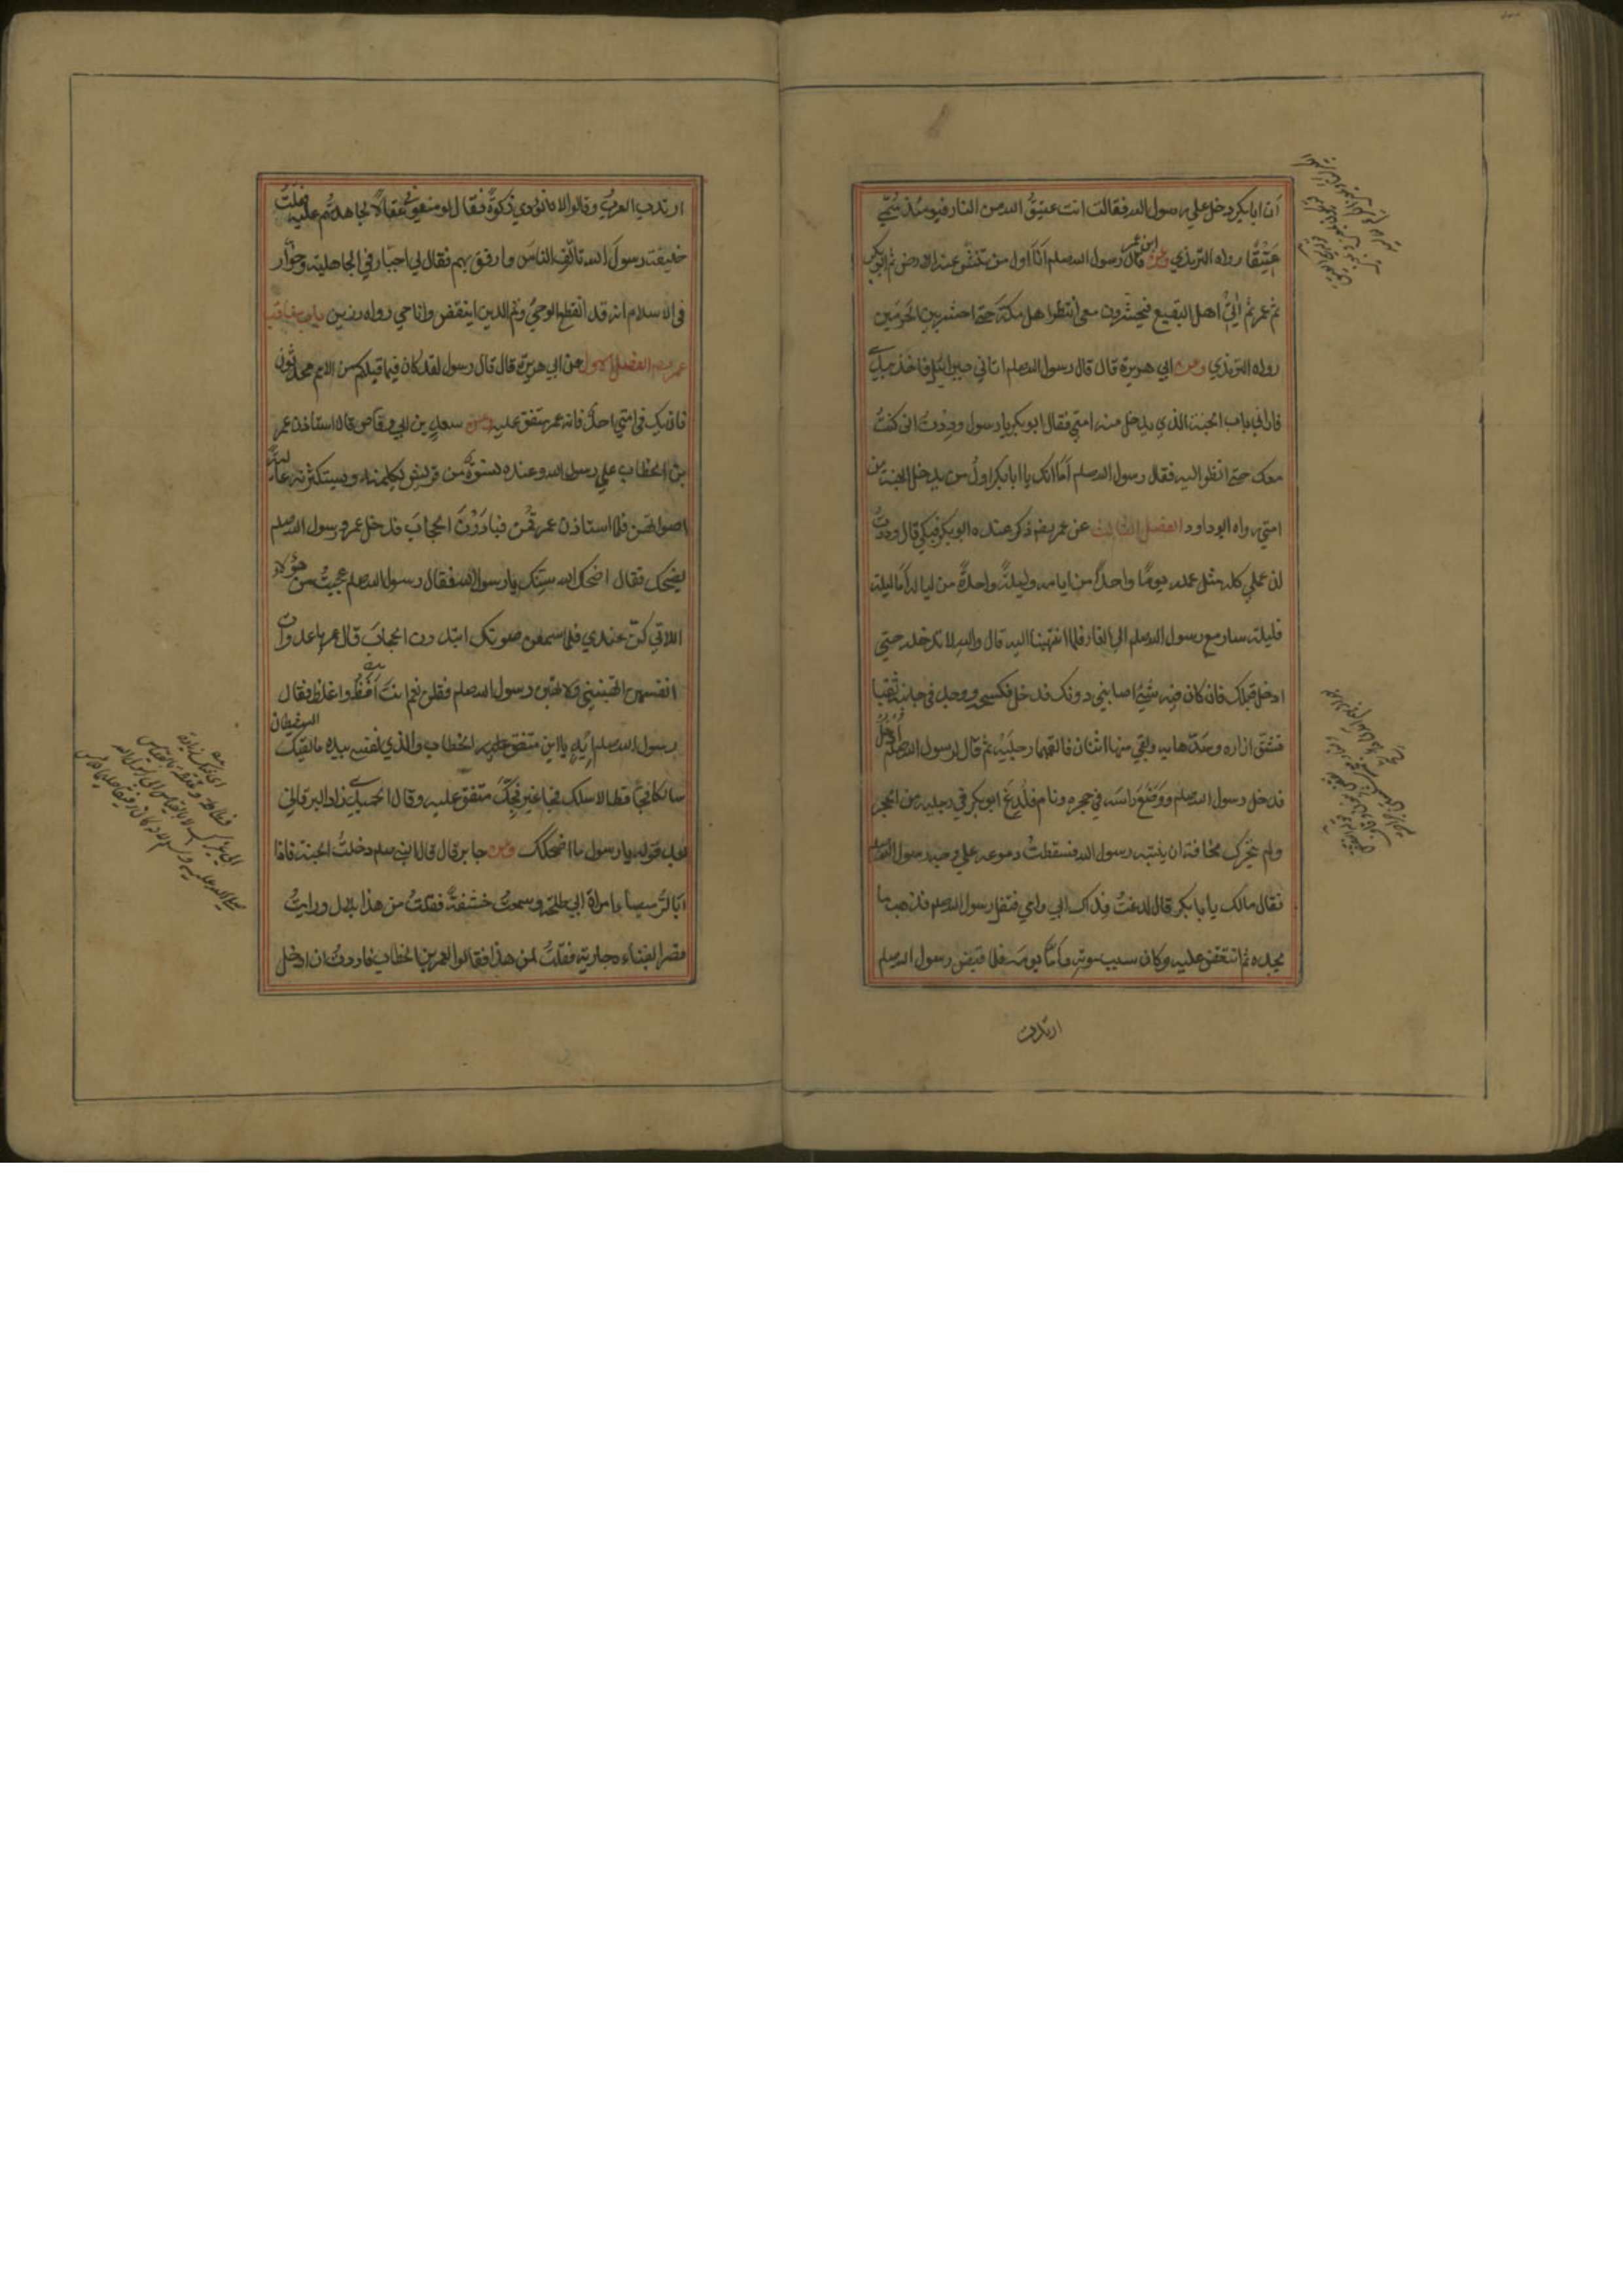 ان ابابكر دخل علي رسول الله فقالت انت عتيقُ الله من النار فيومئذ سُمّي
عَتِيقًا رواه الترمذي وعن ابن عمر قال رسول الله صلعم انا اول من تنشق عنه الارض ثم ابوبكر
ثم عمر ثم اٰتي اهل البقيع فيحشرون معي انتظر اهل مكة حتي احشر بين الحرمين
رواه الترمذي وعن ابي هريرة قال قال رسول الله صلعم اتاني جبرائيل فاخذ بيدي
فاراني باب الجنة الذي يدخل منه امتي فقال ابوبكر يا رسول وددت اني كنتُ
معك حتي انظر اليه فقال رسول الله صلعم اَمَا انك يا ابابكر اولُ من يدخل الجنة من
امتي رواه ابوداود الفصل الثالث عن عمر رضه ذكر عنده ابوبكر فبكي قال وددتُ
لن عملي كله مثل عمله يومًا واحدًا من ايامه وليلةً واحدةً من لياليه اما ليلته
فليلته سار مع رسول الله صلعم الي الغار فلما انتهينا اليه قال والله لا تدخله حتي
ادخل قبلك فان كان فيه شئ اصابني دونك فدخل فكسحه ووجد في جانبه ثقبا
فشقّ ازاره وسدّها به وبقي منها اثنان فالقمهما رجليْه ثم قال لرسول الله صلعم اُدخُل
فدخل رسول الله صلعم ووَضَعَ راسه في حجره ونام فلُدِغ ابوبكر في رجله من الجحر
ولم يتحرك مخافة ان ينتبه رسول الله فسقطتْ دموعه علي وجه رسول الله صلعم
فقال مالك يا بابكر قال لدغتُ فداك ابي وامي فتفل رسول الله صلعم فذهب ما
يجده ثم انتقض عليه وكان سبب موته وامّا يومه فلما قبض رسول الله صلعم
ارتدت
ارتدت العرب وقالوا لا نؤدي زكوةً فقال لو منعوني عقالًا لجاهدتُهم عليه فقلتُ
خليفة رسول الله تالّف الناس وارفق بهم فقال لي اجبّار في الجاهلية وخوّار
في الاسلام انه قد انقطع الوحيُ وتم الدين اينقص وانا حي رواه رزين باب مناقب
عمر رضه الفصل الاول عن ابي هريرة قال قال رسول لقد كان فيما قبلكم من الامم محدثون
فان يك في امتي احدٌ فانه عمر متفق عليه وعن سعد بن ابي وقاص قال استاذن عمر
بن الخطاب علي رسول الله وعنده نسوةٌ من قريش يكلمنه ويستكثرنه عاليةً
اصواتهن فلما استاذن عمر قُمْنَ فبادرْنَ الحجابَ فدخل عمر ورسول الله صلعم
يضحك فقال اضحك الله سنّك يا رسول الله فقال رسول الله صلعم عجبتُ من هؤلاء
اللاتي كنّ عندي فلما سمعن صوتك ابتدرن الحجابَ قال عمر يا عدوات
انفسهن اتهبنني ولا تهبن رسول الله صلعم فقلن نعم انت اَفَظُّ واغلظ فقال
رسول الله صلعم اِيْهٍ يا ابن الخطاب والذي نفسي بيده ما لقيك الشيطان
سالكا فجًّا قط الا سلك فجا غير فجّك متفق عليه وقال الحميدي زاد البرقاني
بعد قوله يا رسول ما اضحكك وعن جابر قال قال النبي صلعم دخلتُ الجنة فاذا
انا بالرُّميصاء امراة ابي طلحة وسمعتُ خشفةً فقلتُ من هذا بلال ورايتُ
قصرا بفنائه جارية فقلتُ لمن هذا فقالوا لعمر بن الخطاب فاردتُ ان ادخل